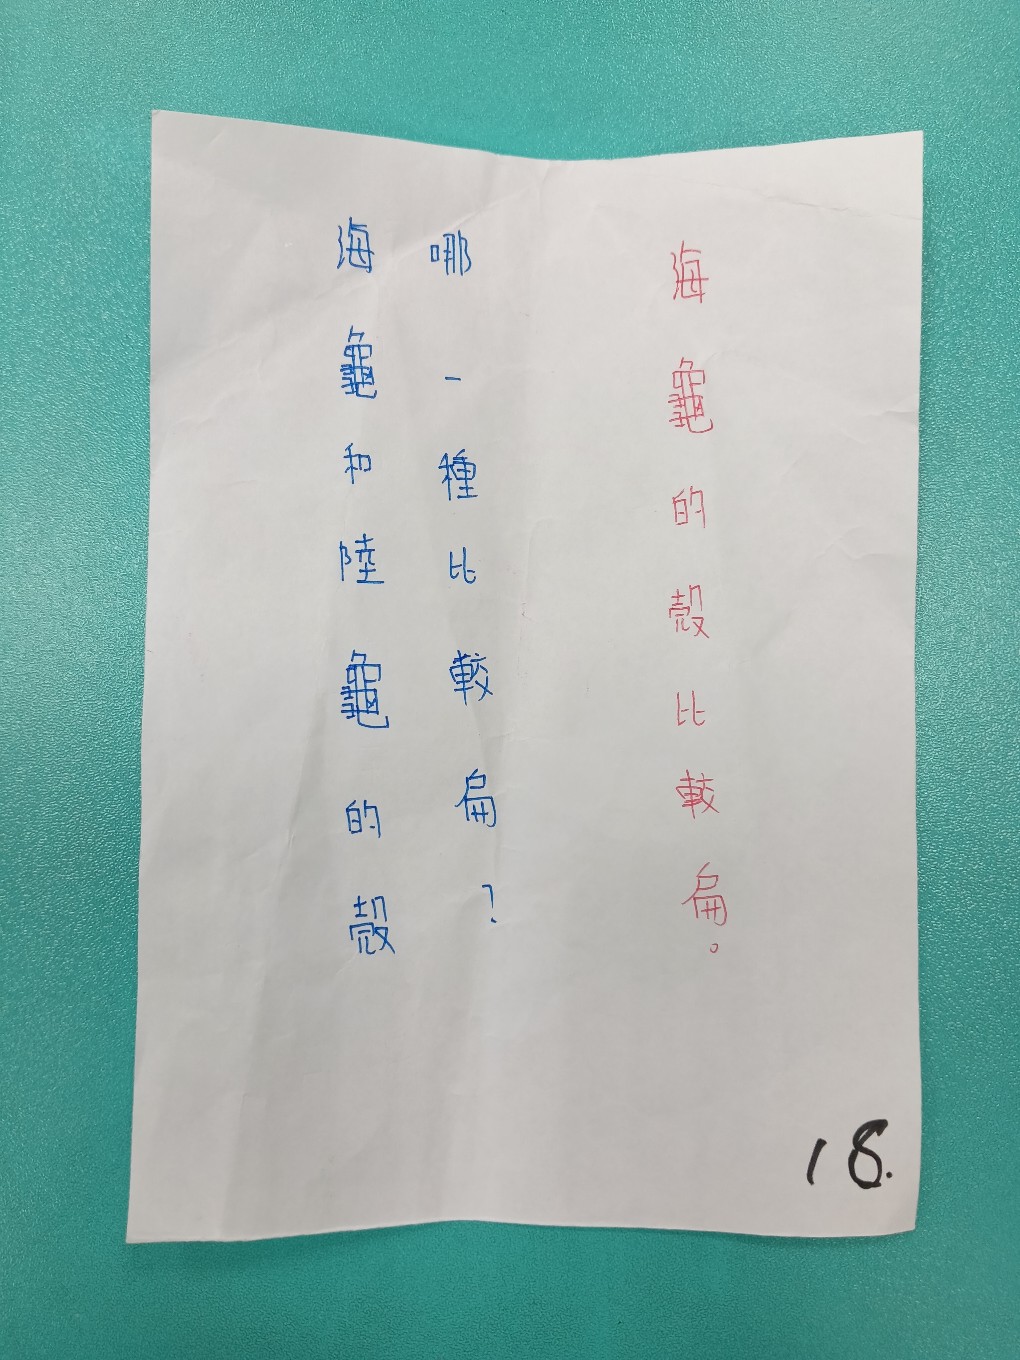 海龜和陸龜的殼
哪一種比較扁?
海龜的殼比較扁。
18.